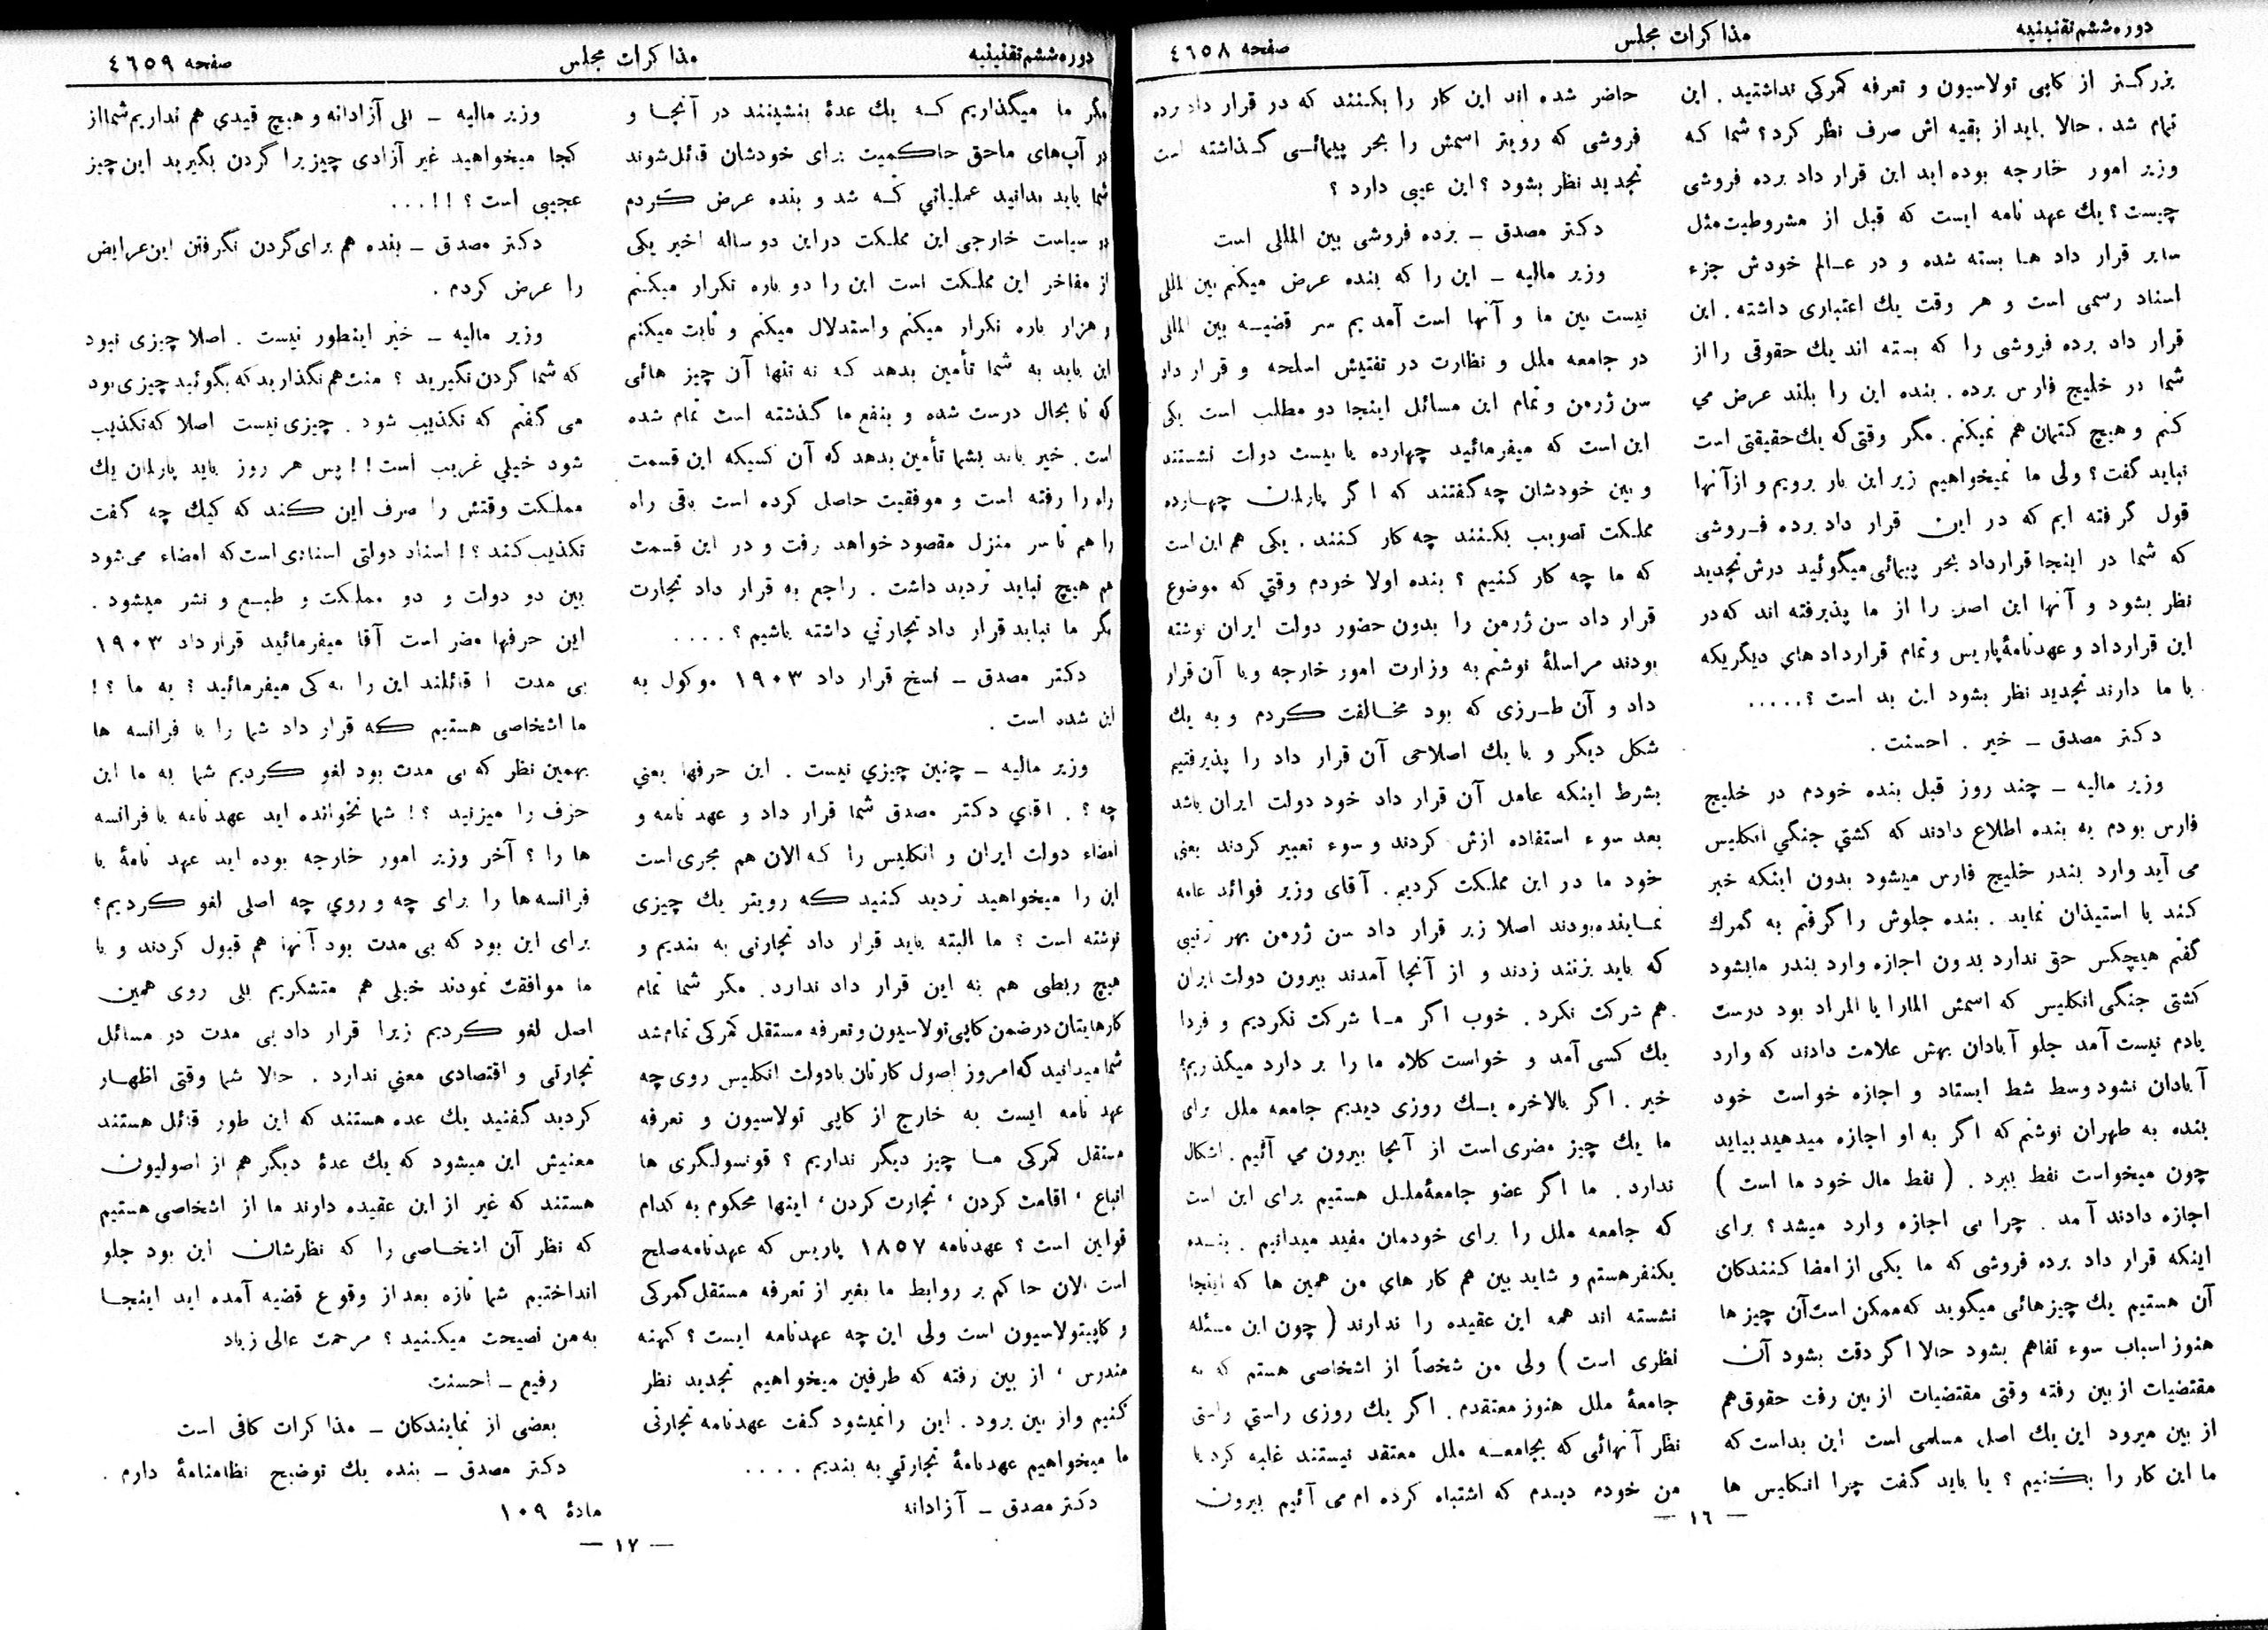 دوره ششم تقنینیه
مذاکرات مجلس
صفحه ٤٦٥٨
بزرگتر از کاپی تولاسیون و تعرفه گمرکی نداشتید . این
تمام شد . حالا باید از بقیه اش صرف نظر کرد ؟ شما که
وزیر امور خارجه بوده اید این قرار داد برده فروشی
چیست ؟ یك عهد نامه ایست که قبل از مشروطیت مثل
سایر قرار داد ها بسته شده و در عالم خودش جزء
اسناد رسمی است و هر وقت یك اعتباری داشته . این
قرار داد برده فروشی را که بسته اند یك حقوقی را از
شما در خلیج فارس برده . بنده این را بلند عرض می
کنم و هیچ کتمان هم نمیکنم . مگر وقتی که یك حقیقتی است
نباید گفت ؟ ولی ما نمیخواهیم زیر این بار برویم و از آنها
قول گرفته ایم که در این قرار داد برده فروشی
که شما در اینجا قرارداد بحر پیمائی میگوئید درش تجدید
نظر بشود و آنها این اصل را از ما پذیرفته اند که در
این قرارداد و عهدنامهٔ پاریس و تمام قرارداد های دیگریکه
با ما دارند تجدید نظر بشود این بد است ؟.....
دکتر مصدق ـ خیر . احسنت .
وزیر مالیه ـ چند روز قبل بنده خودم در خلیج
فارس بودم به بنده اطلاع دادند که کشتی جنگی انگلیس
می آید وارد بندر خلیج فارس میشود بدون اینکه خبر
کند یا استیذان نماید . بنده جلوش را گرفتم به گمرك
گفتم هیچکس حق ندارد بدون اجازه وارد بندر ما بشود
کشتی جنگی انگلیس که اسمش المارا یا المراد بود درست
یادم نیست آمد جلو آبادان بهش علامت دادند که وارد
آبادان نشود وسط شط ایستاد و اجازه خواست خود
بنده به طهران نوشتم که اگر به او اجازه میدهید بیاید
چون میخواست نفط ببرد . ( نفط مال خود ما است )
اجازه دادند آمد . چرا بی اجازه وارد میشد ؟ برای
اینکه قرار داد برده فروشی که ما یکی از امضا کنندگان
آن هستیم یك چیز هائی میگوید که ممکن است آن چیز ها
هنوز اسباب سوء تفاهم بشود حالا اگر دقت بشود آن
مقتضیات از بین رفته وقتی مقتضیات از بین رفت حقوق هم
از بین میرود این یك اصل مسلمی است این بد است که
ما این کار را بکنیم ؟ یا باید گفت چرا انگلیس ها
حاضر شده اند این کار را بکنند که در قرار داد برده
فروشی که رویتر اسمش را بحر پیمائی گذاشته است
تجدید نظر بشود ؟ این عیبی دارد ؟
دکتر مصدق ـ برده فروشی بین المللی است
وزیر مالیه ـ این را که بنده عرض میکنم بین المللی
نیست بین ما و آنها است آمدیم سر قضیه بین المللی
در جامعه ملل و نظارت در تفتیش اسلحه و قرار داد
سن ژرمن و تمام این مسائل اینجا دو مطلب است یکی
این است که میفرمائید چهارده یا بیست دولت نشستند
و بین خودشان چه گفتند که اگر پارلمان چهارده
مملکت تصویب بکنند چه کار کنند . یکی هم این است
که ما چه کار کنیم ؟ بنده اولا خودم وقتی که موضوع
قرار داد سن ژرمن را بدون حضور دولت ایران نوشته
بودند مراسلهٔ نوشتم به وزارت امور خارجه و با آن قرار
داد و آن طرزی که بود مخالفت کردم و به یك
شکل دیگر و با یك اصلاحی آن قرار داد را پذیرفتیم
بشرط اینکه عامل آن قرار داد خود دولت ایران باشد
بعد سوء استفاده ازش کردند و سوء تعبیر کردند یعنی
خود ما در این مملکت کردیم . آقای وزیر فوائد عامه
نماینده بودند اصلا زیر قرار داد سن ژرمن بهر ترتیبی
که باید بزنند زدند و از آنجا آمدند بیرون دولت ایران
هم شرکت نکرد . خوب اگر ما شرکت نکردیم و فردا
یك کسی آمد و خواست کلاه ما را بر دارد میگذریم ؟
خیر . اگر بالاخره یك روزی دیدیم جامعه ملل برای
ما یك چیز مضری است از آنجا بیرون می آئیم . اشکال
ندارد . ما اگر عضو جامعهٔ ملل هستیم برای این است
که جامعه ملل را برای خودمان مفید میدانیم . بنده
یکنفر هستم و شاید بین هم کار های من همین ها که اینجا
نشسته اند همه این عقیده را ندارند ( چون این مسئله
نظری است ) ولی من شخصاً از اشخاصی هستم که به
جامعهٔ ملل هنوز معتقدم . اگر یك روزی راستی راستی
نظر آنهائی که بجامعه ملل معتقد نیستند غلبه کرد یا
من خودم دیدم که اشتباه کرده ام می آئیم بیرون
ـ ١٦ ـ
دوره ششم تقنینیه
مذاکرات مجلس
صفحه ٤٦٥٩
مگر ما میگذاریم که یك عدهٔ بنشینند در آنجا و
در آب های ما حق حاکمیت برای خودشان قائل شوند
شما باید بدانید عملیاتی که شد و بنده عرض کردم
در سیاست خارجی این مملکت در این دو ساله اخیر یکی
از مفاخر این مملکت است این را دو باره تکرار میکنم
و هزار باره تکرار میکنم و استدلال میکنم و ثابت میکنم
این باید به شما تأمین بدهد که نه تنها آن چیز هائی
که تا بحال درست شده و بنفع ما گذشته است تمام شده
است . خیر باید بشما تأمین بدهد که آن کسیکه این قسمت
راه را رفته است و موفقیت حاصل کرده است باقی راه
را هم تا سر منزل مقصود خواهد رفت و در این قسمت
هم هیچ نباید تردید داشت . راجع به قرار داد تجارت
مگر ما نباید قرار داد تجارتی داشته باشیم ؟ ....
دکتر مصدق ـ نسخ قرار داد ١٩٠٣ موکول به
این شده است .
وزیر مالیه ـ چنین چیزی نیست . این حرفها یعنی
چه ؟ . آقای دکتر مصدق شما قرار داد و عهد نامه و
امضاء دولت ایران و انگلیس را که الان هم مجری است
این را میخواهید تردید کنید که رویتر یك چیزی
نوشته است ؟ ما البته باید قرار داد تجارتی به بندیم و
هیچ ربطی هم به این قرار داد ندارد . مگر شما تمام
کارهایتان در ضمن کاپی تولاسیون و تعرفه مستقل گمرکی تمام شد
شما میدانید که امروز اصول کارتان با دولت انگلیس روی چه
عهد نامه ایست به خارج از کاپی تولاسیون و تعرفه
مستقل گمرکی ما چیز دیگر نداریم ؟ قونسولگری ها
اتباع ، اقامت کردن ، تجارت کردن ، اینها محکوم به کدام
قوانین است ؟ عهدنامه ١٨٥٧ پاریس که عهدنامه صلح
است الان حاکم بر روابط ما بغیر از تعرفه مستقل گمرکی
و کاپیتولاسیون است ولی این چه عهدنامه ایست ؟ کهنه
مندرس ، از بین رفته که طرفین میخواهیم تجدید نظر
کنیم و از بین برود . این را نمیشود گفت عهدنامه تجارتی
ما میخواهیم عهدنامهٔ تجارتی به بندیم ....
دکتر مصدق ـ آزادانه
وزیر مالیه ـ بلی آزادانه و هیچ قیدی هم نداریم شما از
کجا میخواهید غیر آزادی چیز برا گردن بگیرید این چیز
عجیبی است ؟ !! ...
دکتر مصدق ـ بنده هم برای گردن نگرفتن این عرایض
را عرض کردم .
وزیر مالیه ـ خیر اینطور نیست . اصلا چیزی نبود
که شما گردن نگیرید ؟ منت هم نگذارید که بگوئید چیزی بود
می گفتم که تکذیب شود . چیزی نیست اصلا که تکذیب
شود خیلی غریب است !! پس هر روز باید پارلمان یك
مملکت وقتش را صرف این کند که كيك چه گفت
تکذیب کند ؟! اسناد دولتی اسنادی است که امضاء می شود
بین دو دولت و دو مملکت و طبع و نشر میشود .
این حرفها مضر است آقا میفرمائید قرار داد ١٩٠٣
بی مدت را قائلند این را به کی میفرمائید ؟ به ما ؟ !
ما اشخاصی هستیم که قرار داد شما را با فرانسه ها
بهمین نظر که بی مدت بود لغو کردیم شما به ما این
حرف را میزنید ؟ ! شما نخوانده اید عهدنامه با فرانسه
ها را ؟ آخر وزیر امور خارجه بوده اید عهد نامهٔ با
فرانسه ها را برای چه و روی چه اصلی لغو کردیم ؟
برای این بود که بی مدت بود آنها هم قبول کردند و با
ما موافقت نمودند خیلی هم متشکریم بلی روی همین
اصل لغو کردیم زیرا قرار داد بی مدت در مسائل
تجارتی و اقتصادی معنی ندارد . حالا شما وقتی اظهار
کردید گفتید یك عده هستند که این طور قائل هستند
معنیش این میشود که یك عدهٔ دیگر هم از اصولیون
هستند که غیر از این عقیده دارند ما از اشخاصی هستیم
که نظر آن اشخاصی را که نظرشان این بود جلو
انداختیم شما تازه بعد از وقوع قضیه آمده اید اینجا
به من نصیحت میکنید ؟ مرحمت عالی زیاد
رفیع ـ احسنت
بعضی از نمایندگان ـ مذاکرات کافی است
دکتر مصدق ـ بنده یك توضیح نظامنامهٔ دارم .
مادهٔ ١٠٩
ـ ١٧ ـ